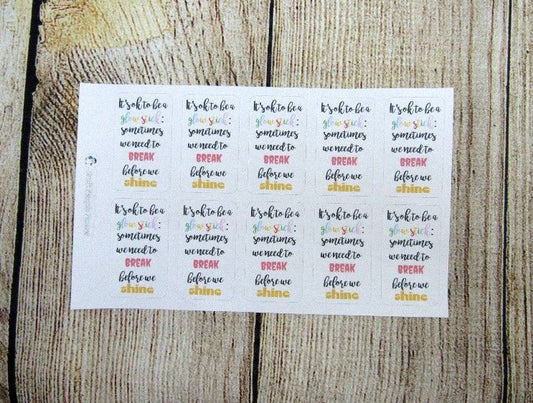 It's ok to be a It's ok to be a It's ok to be a It's ok to be a It's ok to be a
glow stick: glow stick: glow stick: glow stick: glow stick:
sometimes sometimes sometimes sometimes sometimes
we need to we need to we need to we need to we need to
BREAK BREAK BREAK BREAK BREAK
before we before we before we before we before we
shine shine shine shine shine
It's ok to be a It's ok to be a It's ok to be a It's ok to be a It's ok to be a
glow stick: glow stick: glow stick: glow stick: glow stick:
sometimes sometimes sometimes sometimes sometimes
we need to we need to we need to we need to we need to
BREAK BREAK BREAK BREAK BREAK
before we before we before we before we before we
shine shine shine shine shine